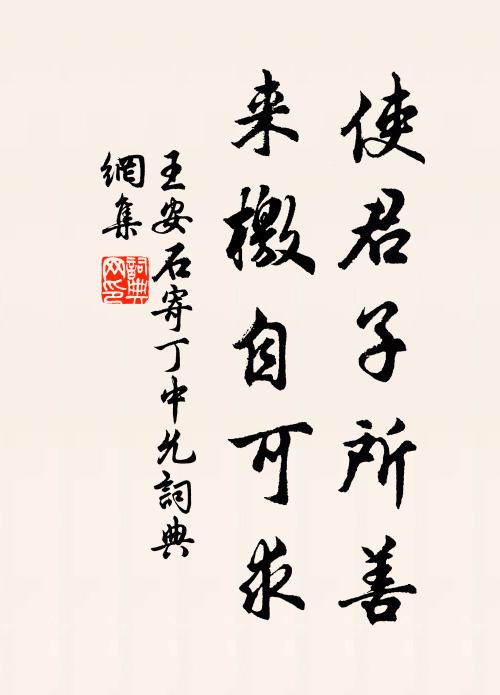 使君子所善
来檄自可求
王安石寄丁中允詞典
網集
詞典
网印